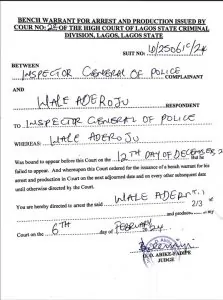 BENCH WARRANT FOR ARREST AND PRODUCTION ISSUED BY
COUR NO: 26 OF THE HIGH COURT OF LAGOS STATE CRIMINAL
DIVISION, LAGOS, LAGOS STATE
SUIT NO:
BETWEEN
INSPECTOR GENERAL OF POLICE
COMPLAINANT
AND
WALE ADEROJU
RESPONDENT
TO INSPECTOR GENERAL OF POLICE
WHEREAS: WALE ADEROJU
Was bound to appear before this Court on the 12TH DAY OF DECEMBER, But he
failed to appear. And whereupon this Court ordered for the issuance of a bench warrant for his
arrest and production in Court on the next adjourned date and on every other subsequent date
until otherwise directed by the Court.
You are hereby directed to arrest the said WALE
2/3
and produce
Court on the 6TH FEBRUARY 24
JUDGE